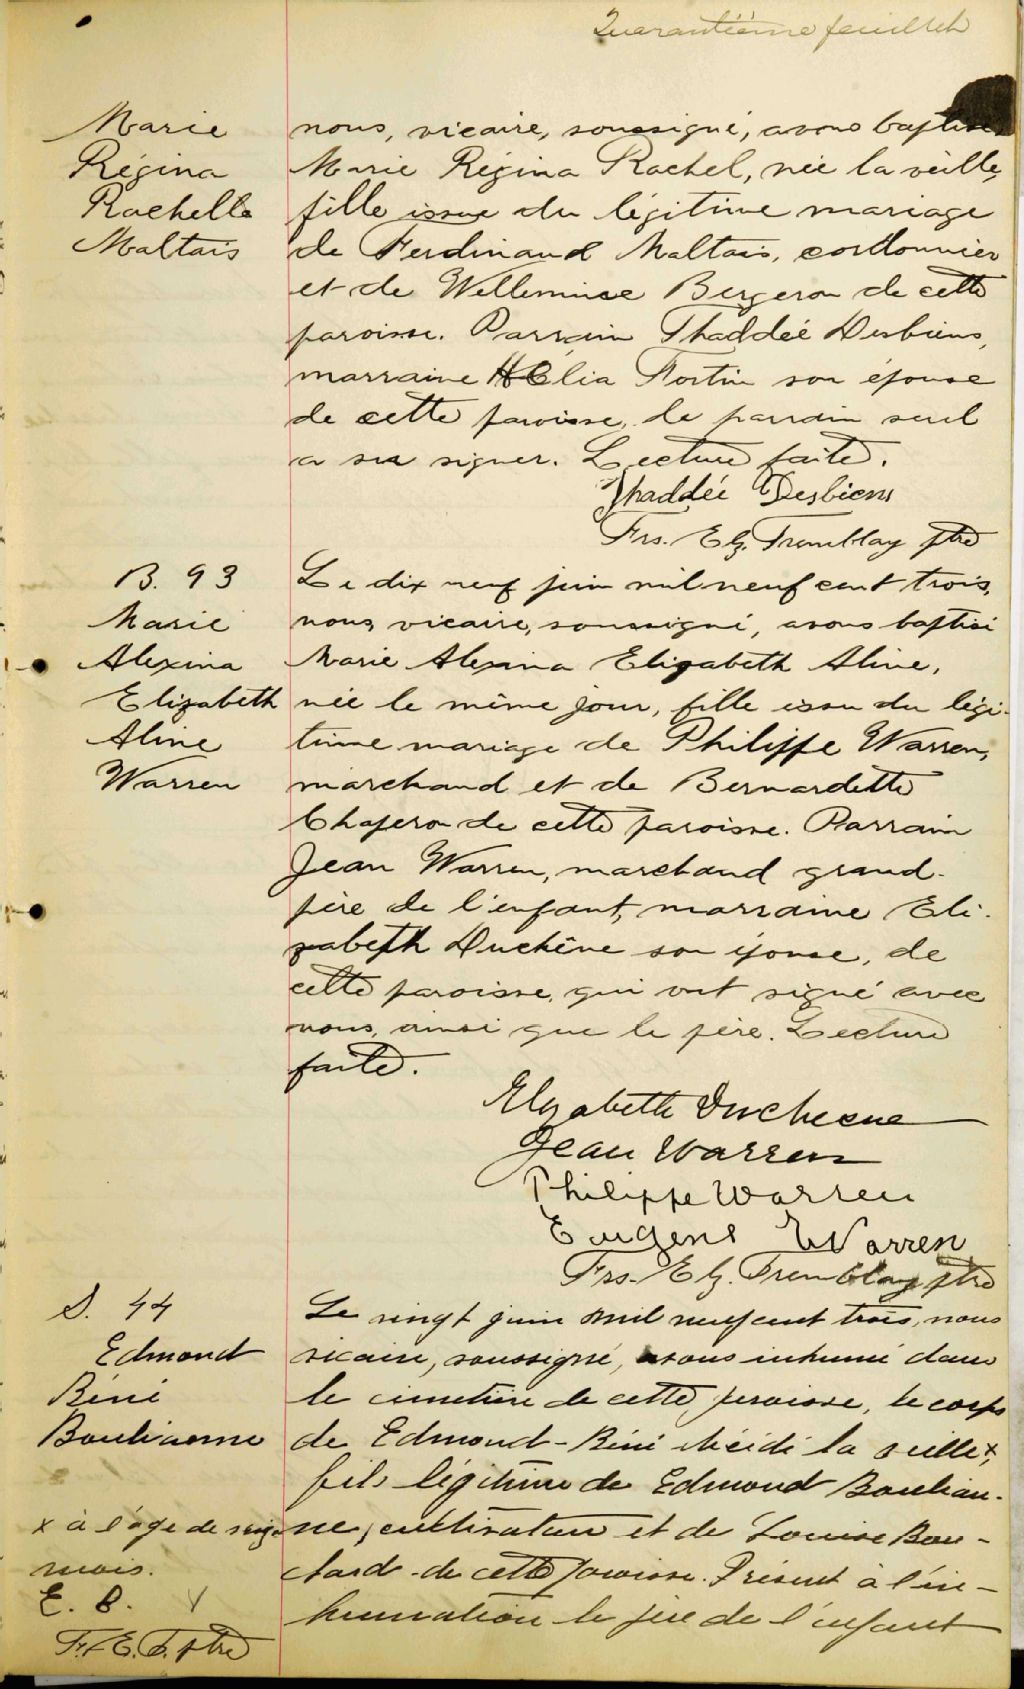 Quarantième feuillet
Marie
Régina
Rachelle
Maltais
nous, vicaire, soussigné, avons baptisé
Marie Régina Rachel, née la veille,
fille issue du légitime mariage
de Ferdinand Maltais, cordonnier
et de Wellemine Bergeron de cette
paroisse. Parrain Thaddée Desbiens,
marraine Célia Fortin son épouse
de cette paroisse, le parrain seul
a su signer. Lecture faite.
Thaddée Desbiens
Frs. Elz. Tremblay ptre
B. 93
Marie
Alexina
Elizabeth
Aline
Warren
Le dix neuf juin mil neuf cent trois,
nous, vicaire, soussigné, avons baptisé
Marie Alexina Elizabeth Aline,
née le même jour, fille issu du légi-
time mariage de Philippe Warren,
marchand et de Bernardette
Chaperon de cette paroisse. Parrain
Jean Warren, marchand grand-
père de l'enfant, marraine Eli-
zabeth Duchêne son épouse, de
cette paroisse, qui ont signé avec
nous, ainsi que le père. Lecture
faite.
Elizabeth Duchesne
Jean Warren
Philippe Warren
Eugene Warren
Frs. Elz. Tremblay ptre
S. 44
Edmond
Réné
Boulianne
Le vingt juin mil neuf cent trois, nous
vicaire, soussigné, avons inhumé dans
le cimetière de cette paroisse, le corps
de Edmond-Réné décédé la veille x,
fils légitime de Edmond Boulian-
ne, cultivateur et de Louise Bou-
chard de cette paroisse. Présent à l'in-
humation le père de l'enfant
x à l'âge de seize
mois.
E. B. V
F. E. T. ptre